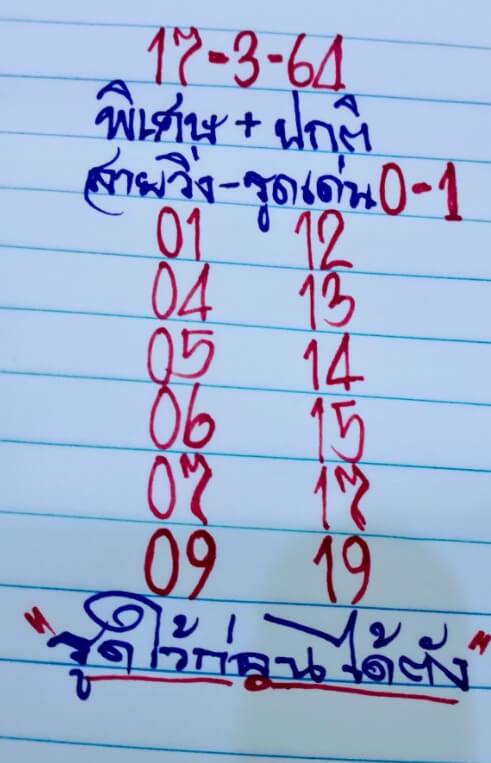 17-3-64
พิเศษ + ปกติ
สายวิ่ง-รูดเด่น 0-1
01 12
04 13
05 14
06 15
07 17
09 19
"รูดไว้ก่อนได้ตัง"